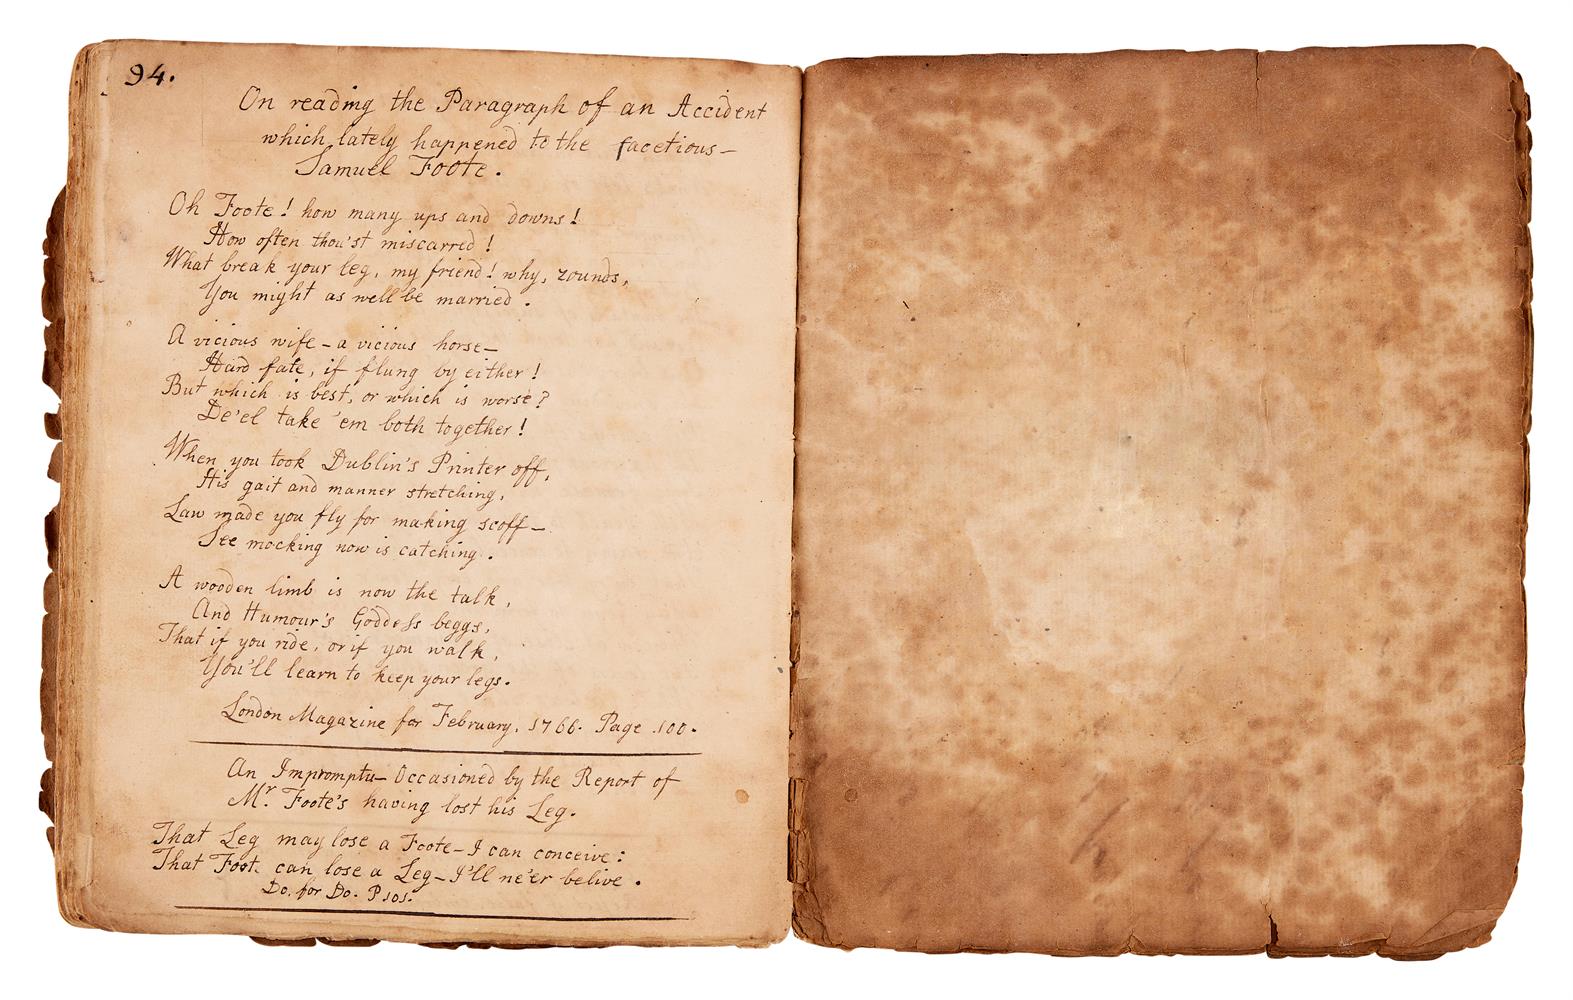 94.
On reading the Paragraph of an Accident
which lately happened to the facetious—
Samuel Foote.
Oh Foote! how many ups and downs!
How often thou'st miscarried!
What break your leg, my friend! why, zounds,
You might as well be married.
A vicious wife – a vicious horse –
Hard fate, if flung by either!
But which is best, or which is worse?
De'el take 'em both together!
When you took Dublin's Printer off,
His gait and manner stretching,
Law made you fly for making scoff—
See mocking now is catching.
A wooden limb is now the talk,
And Humour's Goddess beggs,
That if you ride, or if you walk,
You'll learn to keep your legs.
London Magazine for February, 1766. Page 100.
An Impromptu – Occasioned by the Report of
Mr. Foote's having lost his Leg.
That Leg may lose a Foote – I can conceive:
That Foote can lose a Leg – I'll ne'er belive.
Do. for Do. P 101.